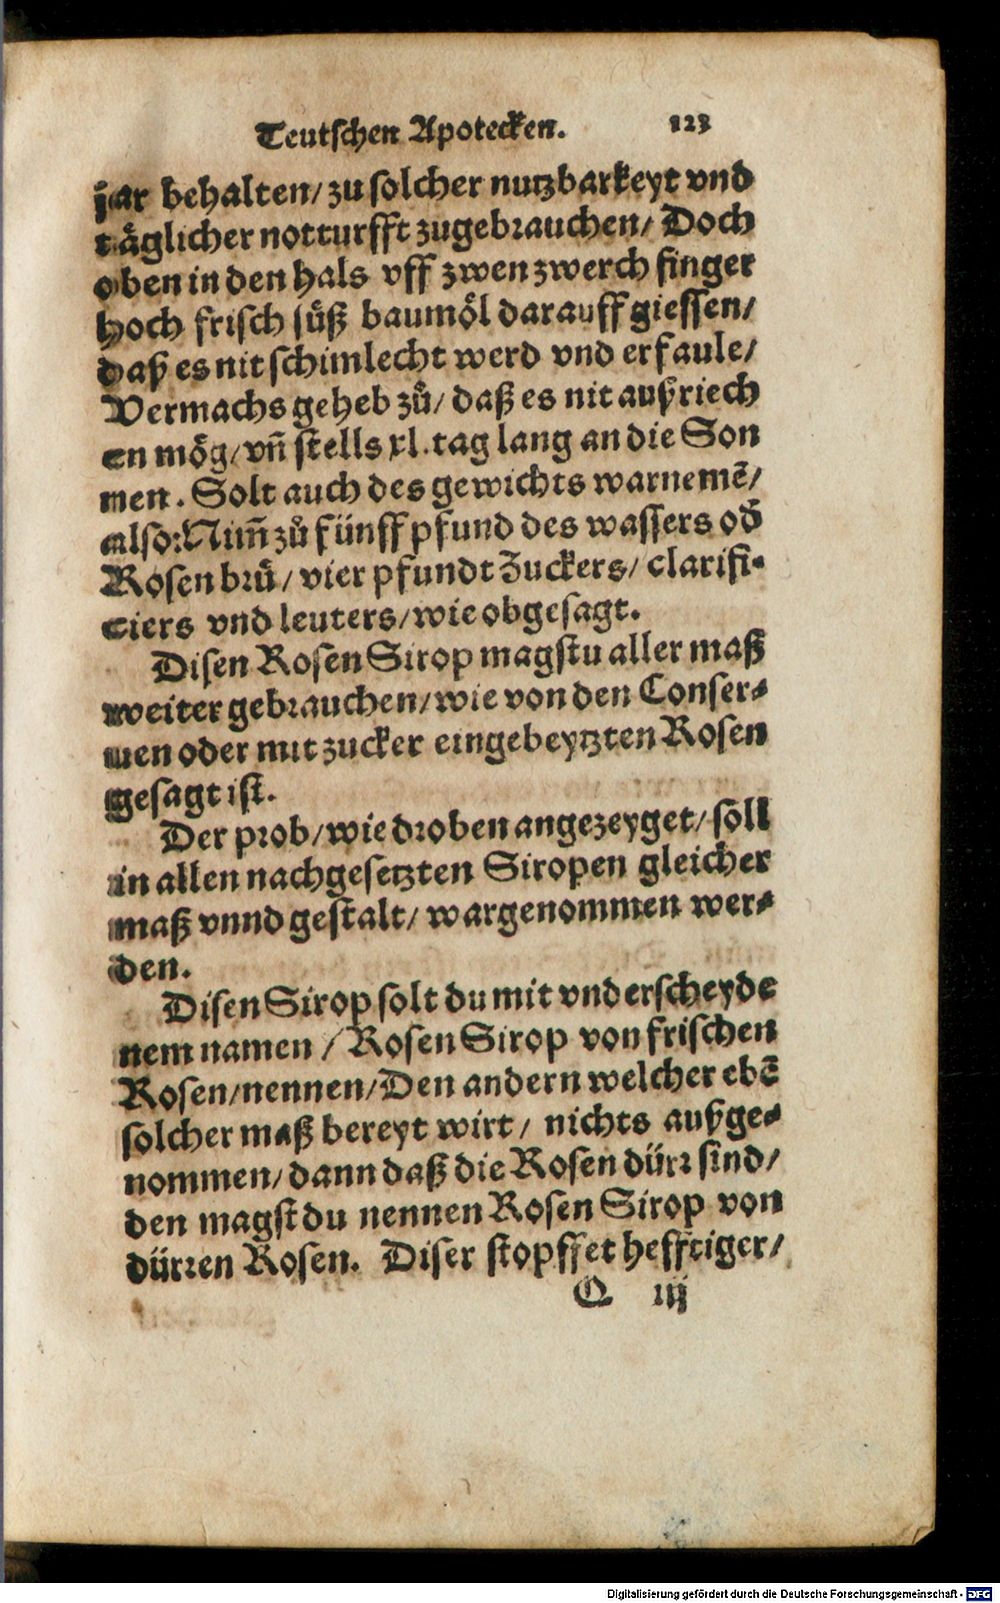 Teutschen Apotecken. 123
jar behalten/ zu solcher nutzbarkeyt vnd
täglicher notturfft zugebrauchen/ Doch
oben in den hals vff zwen zwerch finger
hoch frisch süß baumöl darauff giessen/
daß es nit schimlecht werd vnd erfaule/
Vermachs geheb zů/ daß es nit außriech
en mög/ vñ stells xl. tag lang an die Son
nen. Solt auch des gewichts warnemē/
also: Nim̄ zů fünff pfund des wassers od̄
Rosen brů/ vier pfundt Zuckers/ clarifi-
ciers vnd leuters/ wie obgesagt.
Disen Rosen Sirop magstu aller maß
weiter gebrauchen/ wie von den Conser-
uen oder mit zucker eingebeytzten Rosen
gesagt ist.
Der prob/ wie droben angezeyget/ soll
in allen nachgesetzten Siropen gleicher
maß vnnd gestalt/ wargenommen wer-
den.
Disen Sirop solt du mit vnderscheyde
nem namen / Rosen Sirop von frischen
Rosen/ nennen/ Den andern welcher ebē
solcher maß bereyt wirt/ nichts außge-
nommen/ dann daß die Rosen dürr sind/
den magst du nennen Rosen Sirop von
dürren Rosen. Diser stopffet hefftiger/
Q iij
Digitalisierung gefördert durch die Deutsche Forschungsgemeinschaft - DFG